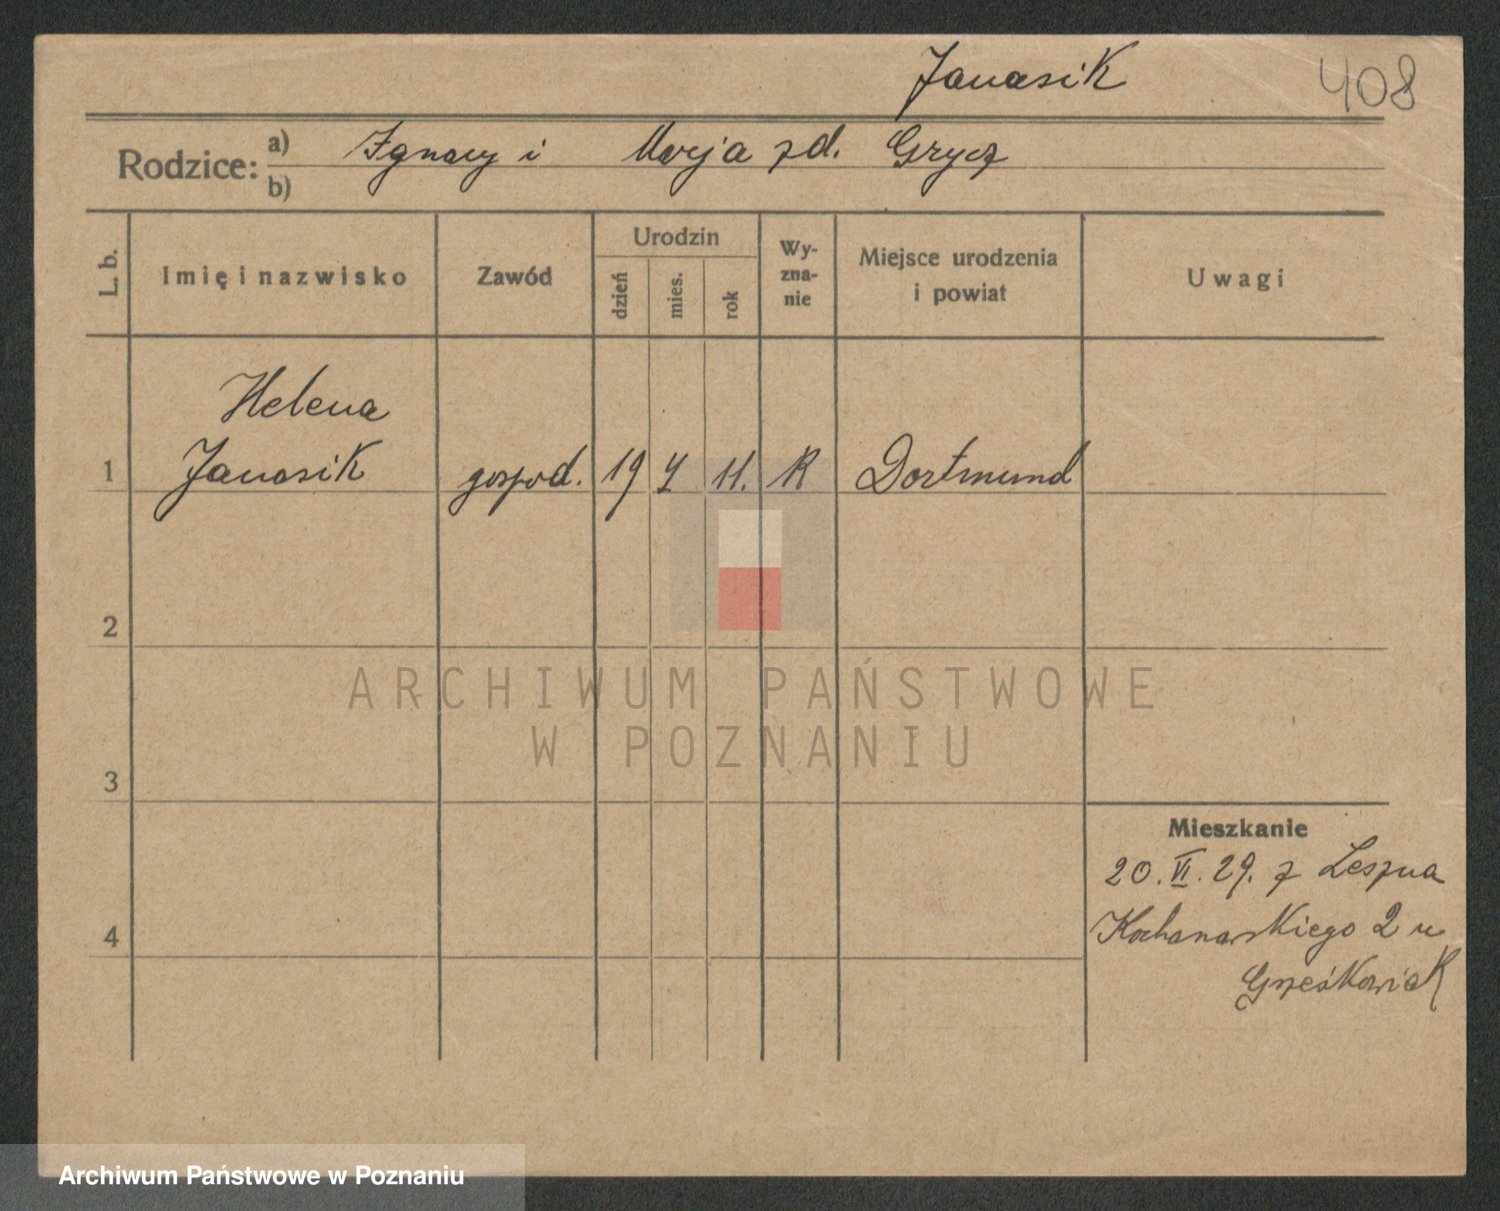 Janasik 408
Rodzice: a) Ignacy i Marja zd. Grycz
b)
L. b. Imię i nazwisko Zawód Urodzin dzień mies. rok Wyznanie Miejsce urodzenia i powiat Uwagi
Helena
1 Janasik gospod. 19 4 11. R Dortmund
2
3
4
Mieszkanie
20. VI. 29. z Leszna
Kochanowskiego 2 u
Grześkowiak
ARCHIWUM PAŃSTWOWE
W POZNANIU
Archiwum Państwowe w Poznaniu